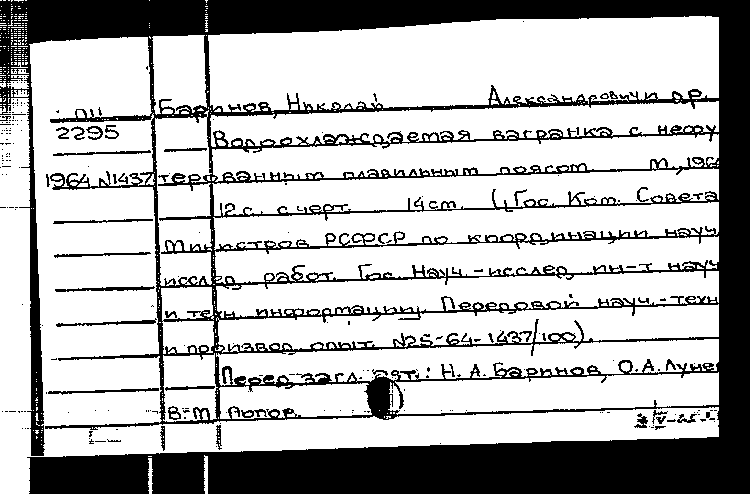 П11 Баринов, Николай Александрович и др.
2295 Водоохлаждаемая вагранка с нефу
1964 N1437 терованным плавильным поясом. М., 196
12 с. с черт. 14 см. (Гос. Ком. Совета
Министров РСФСР по координации науч
исслед. работ. Гос. Науч.-исслед. ин-т науч
и техн. информации. Передовой науч.-техн
и производ. опыт. N25-64-1437/100).
Перед загл. авт.: Н. А. Баринов, О. А. Луне
В-м Попов.